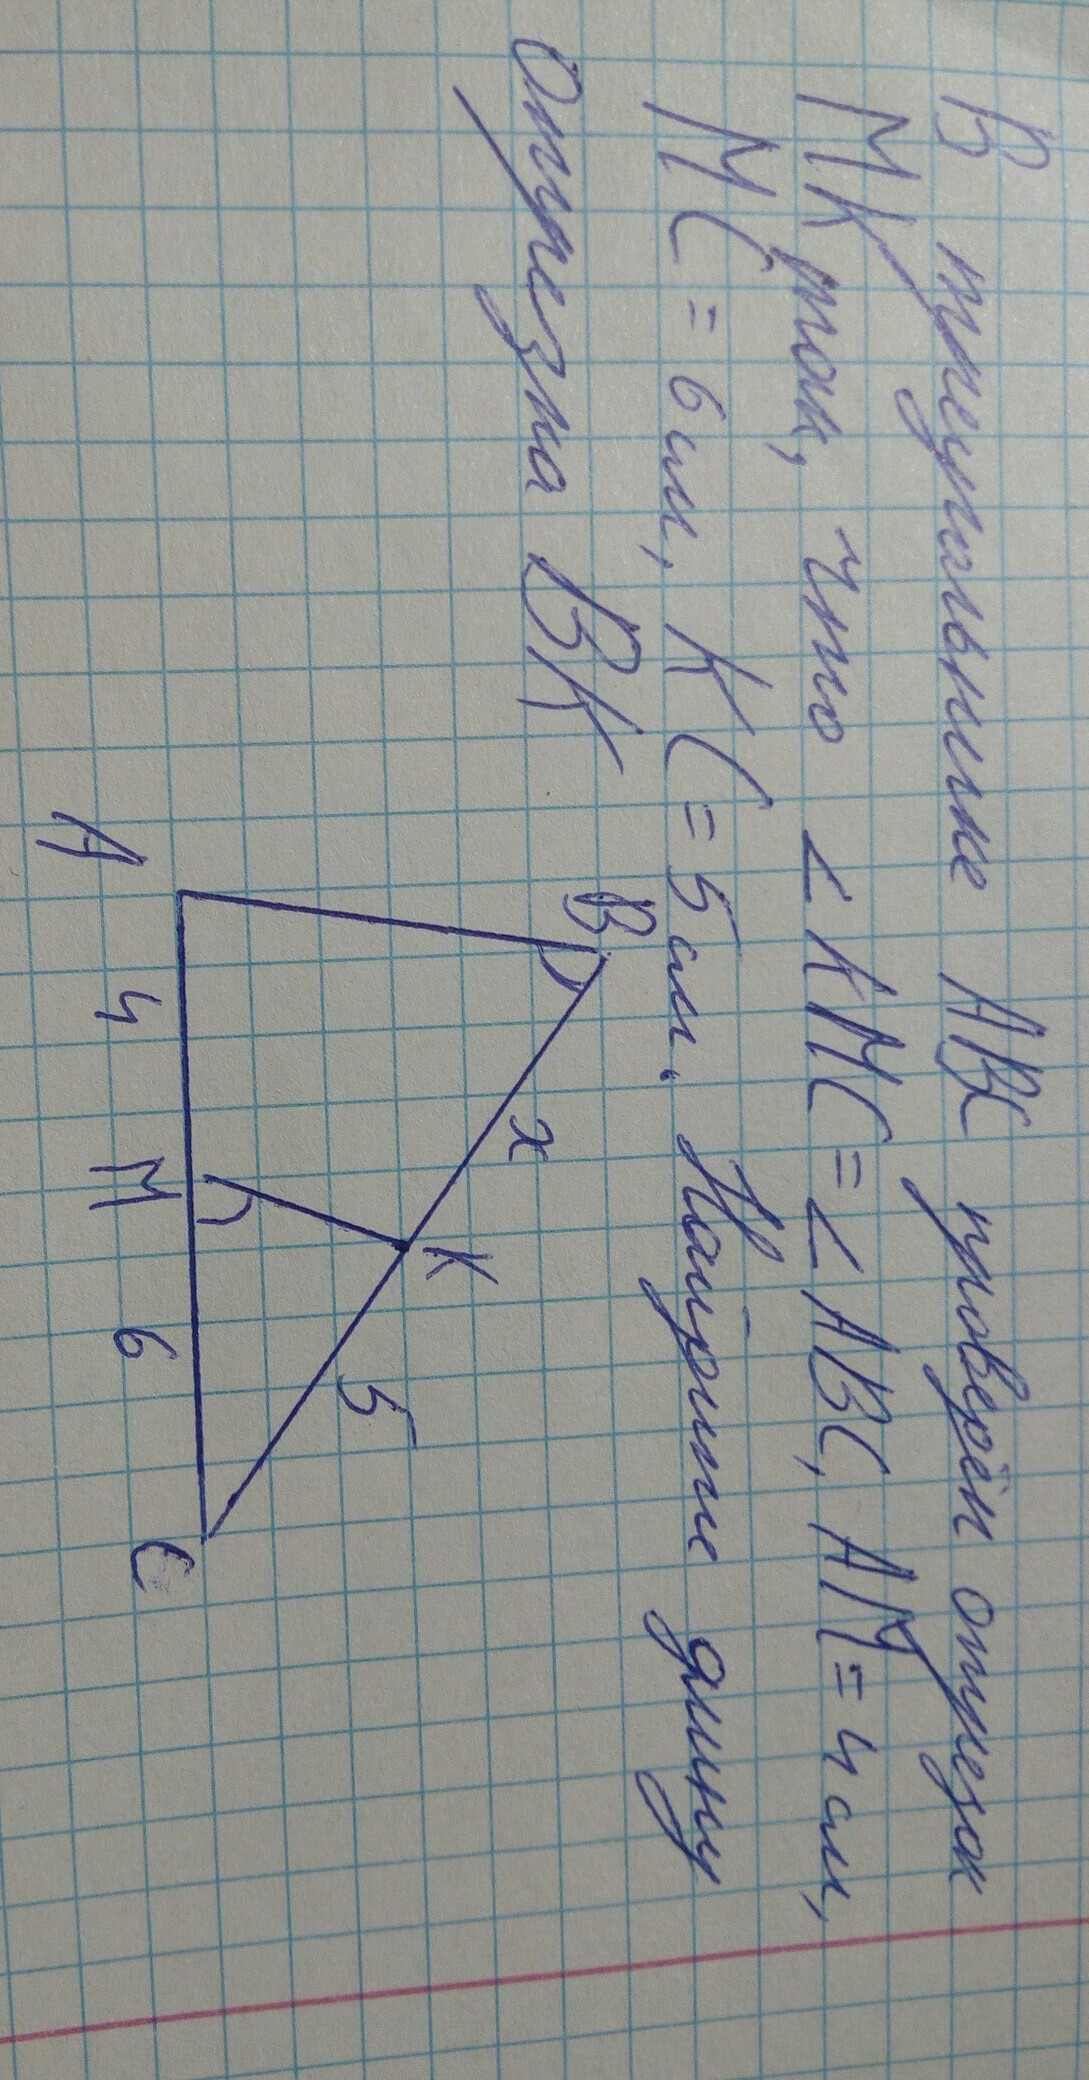 В треугольнике АВС проведён отрезок
МК так, что ∠КМС=∠АВС, АМ=4см,
МС=6см, КС=5см. Найдите длину
Отрезка ВК
В
х
К
5
А
4
М
6
С